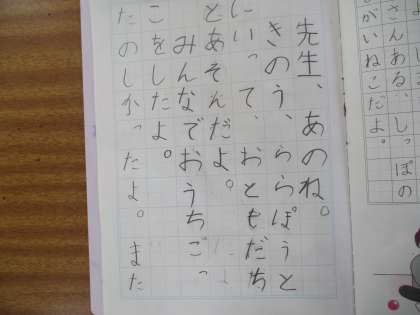 さんある、しっぽの
がいねこだよ。
先生、あのね。
きのう、ららぽうと
にいって、おともだち
とあそんだよ。
みんなでおうちごっ
こをしたよ。
たのしかったよ。また